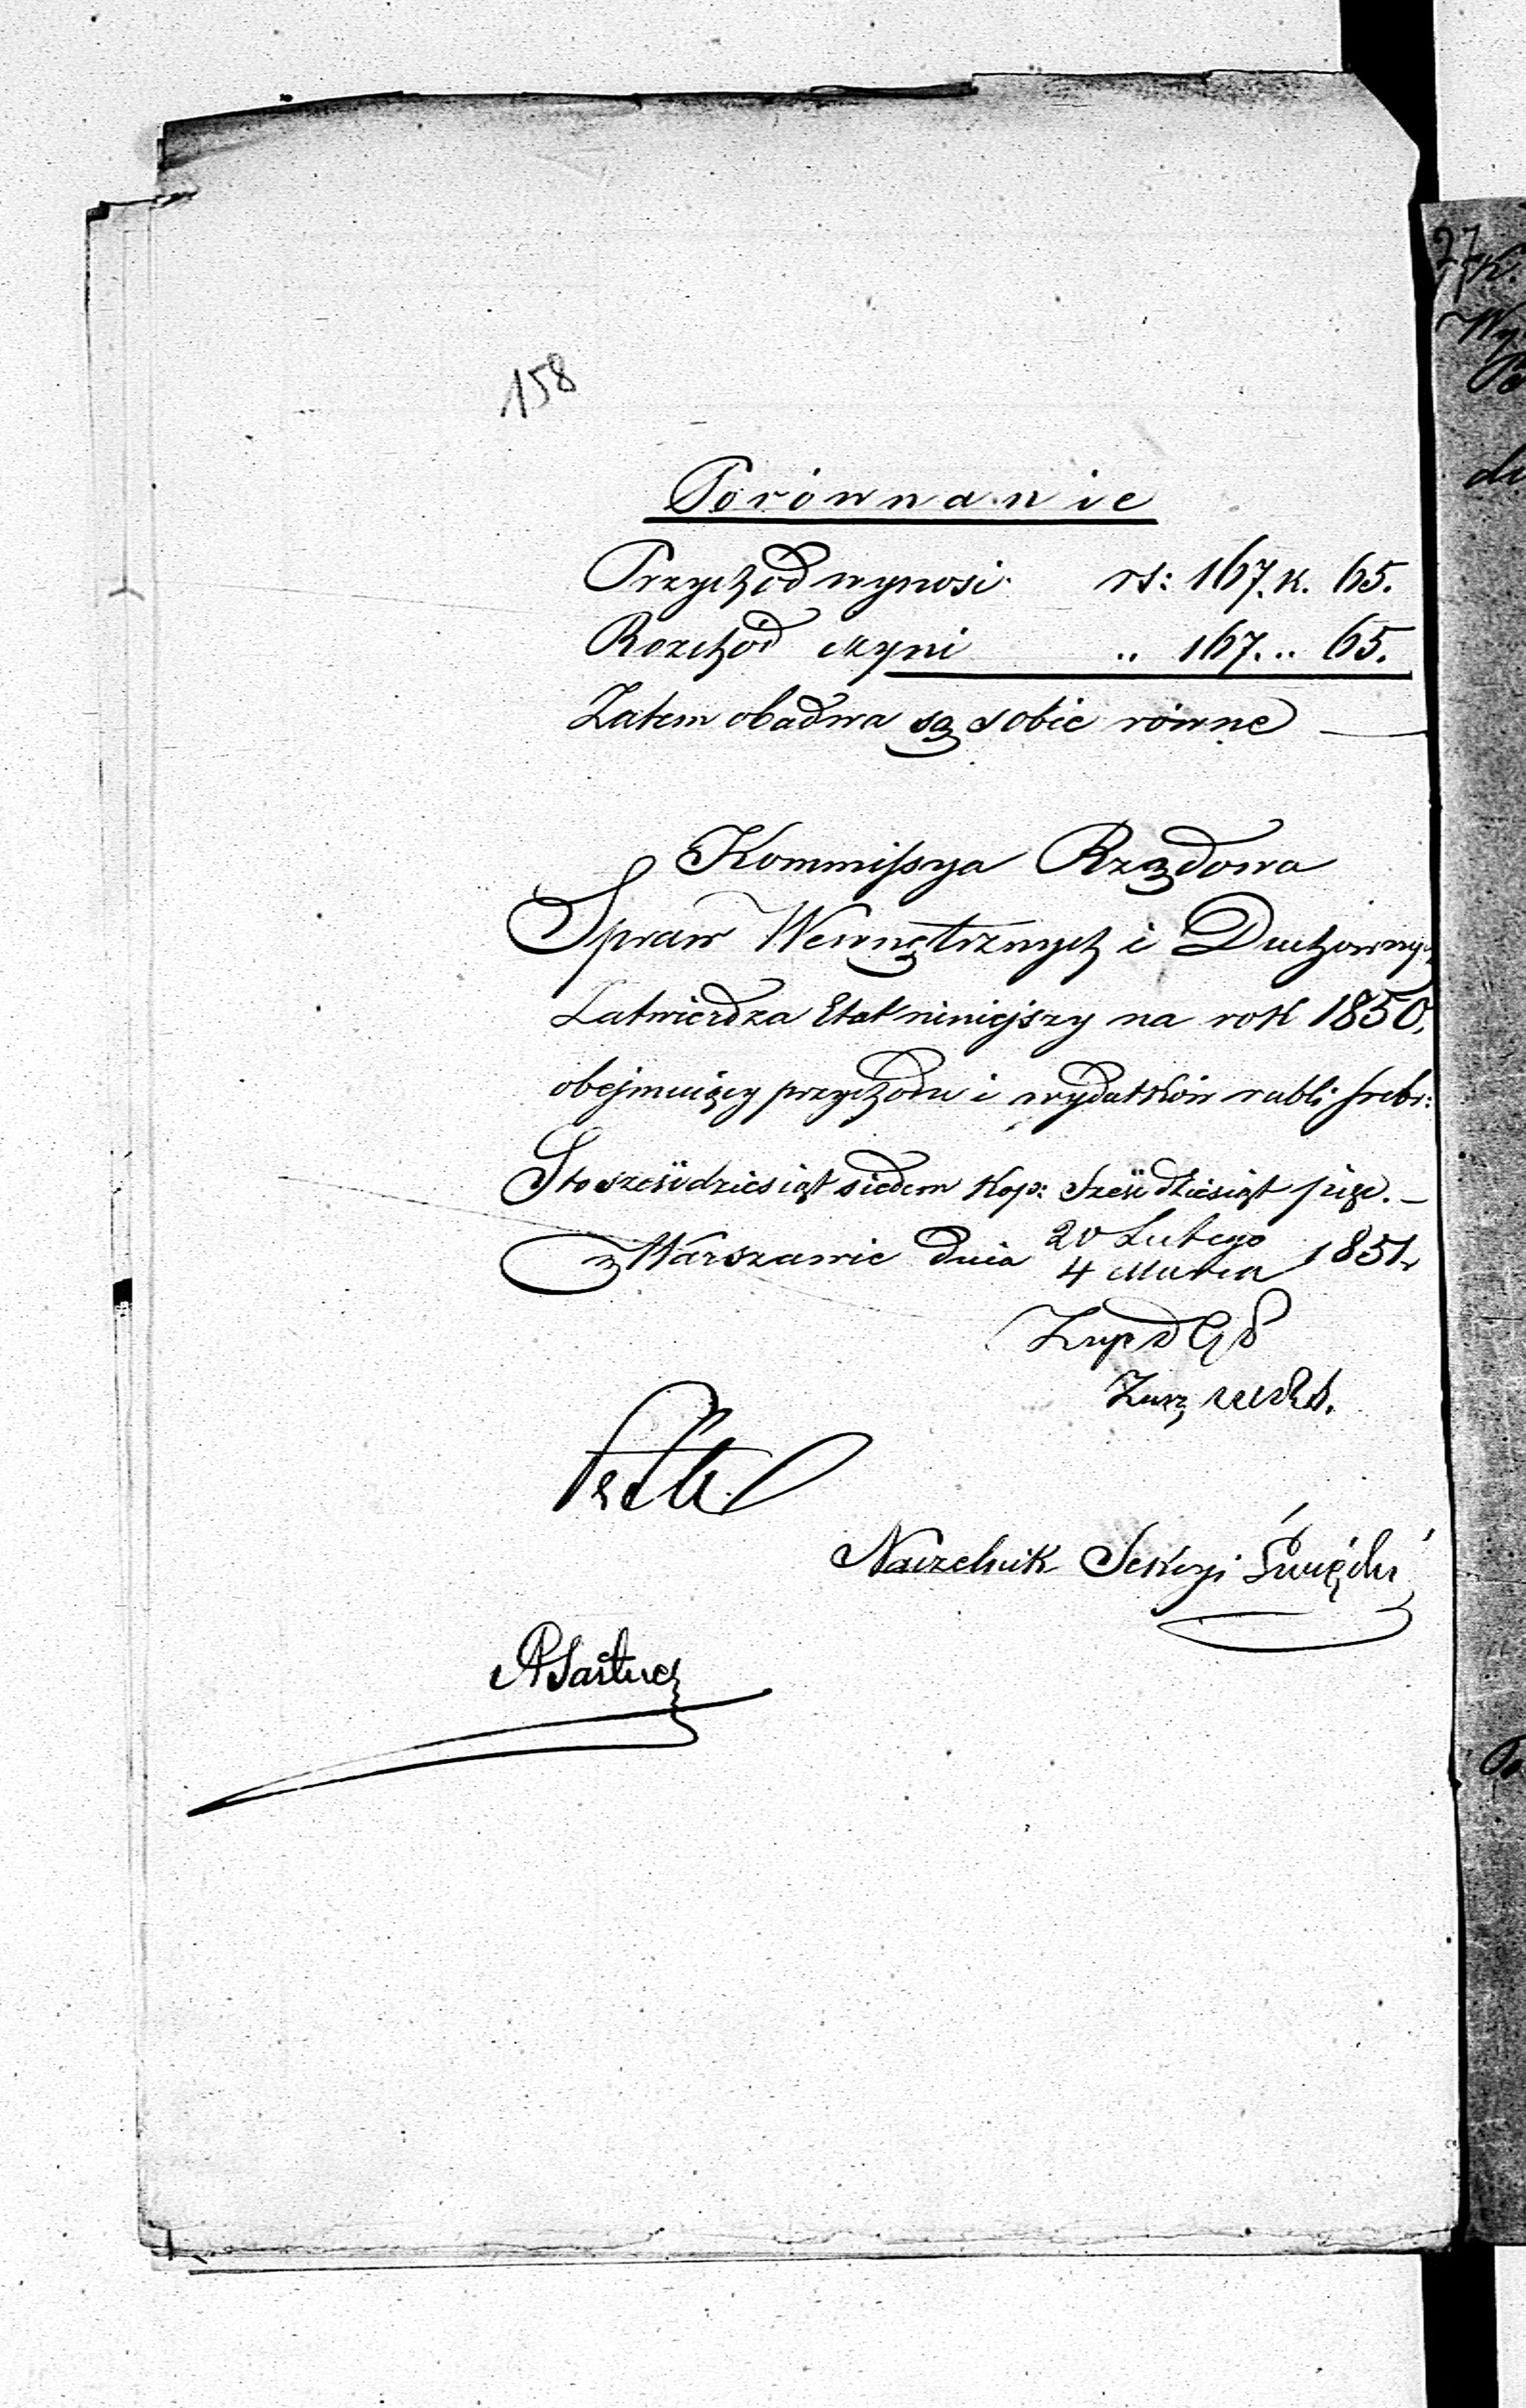 158
Porównanie
Przychód wynosi rs: 167. k. 65.
Rozchód czyni „ 167. „ 65.
Zatem obadwa są sobie równe
Kommissya Rządowa
Spraw Wewnętrznych i Duchownych
Zatwierdza Etat niniejszy na rok 1850,
obejmuiący przychodu i wydatków rubli srebr:
Sto sześćdziesiąt siedem kop: sześćdziesiąt pięć. —
w Warszawie dnia 20 Lutego
4 Marca 1851 r
Naczelnik Sekcyi
27